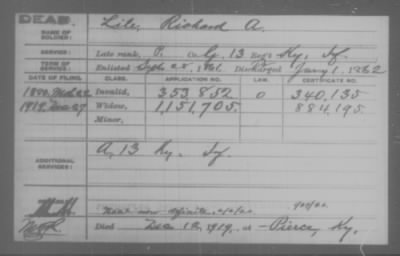 DEAD.
NAME OF SOLDIER: Lile, Richard A.
SERVICE: Late rank, P. Co. G, 13 Reg't Ky. Inf.
TERM OF SERVICE: Enlisted Sept 25, 1861. Discharged Jany 1, 1862
DATE OF FILING. CLASS. APPLICATION NO. LAW. CERTIFICATE NO.
1880 Invalid, 353,852 O 340,135
1919, Widow, 1,151,705. 884,195
Minor,
ADDITIONAL SERVICES: A, 13 Ky. Inf.
Died Dec 1919, at Pierce, Ky.